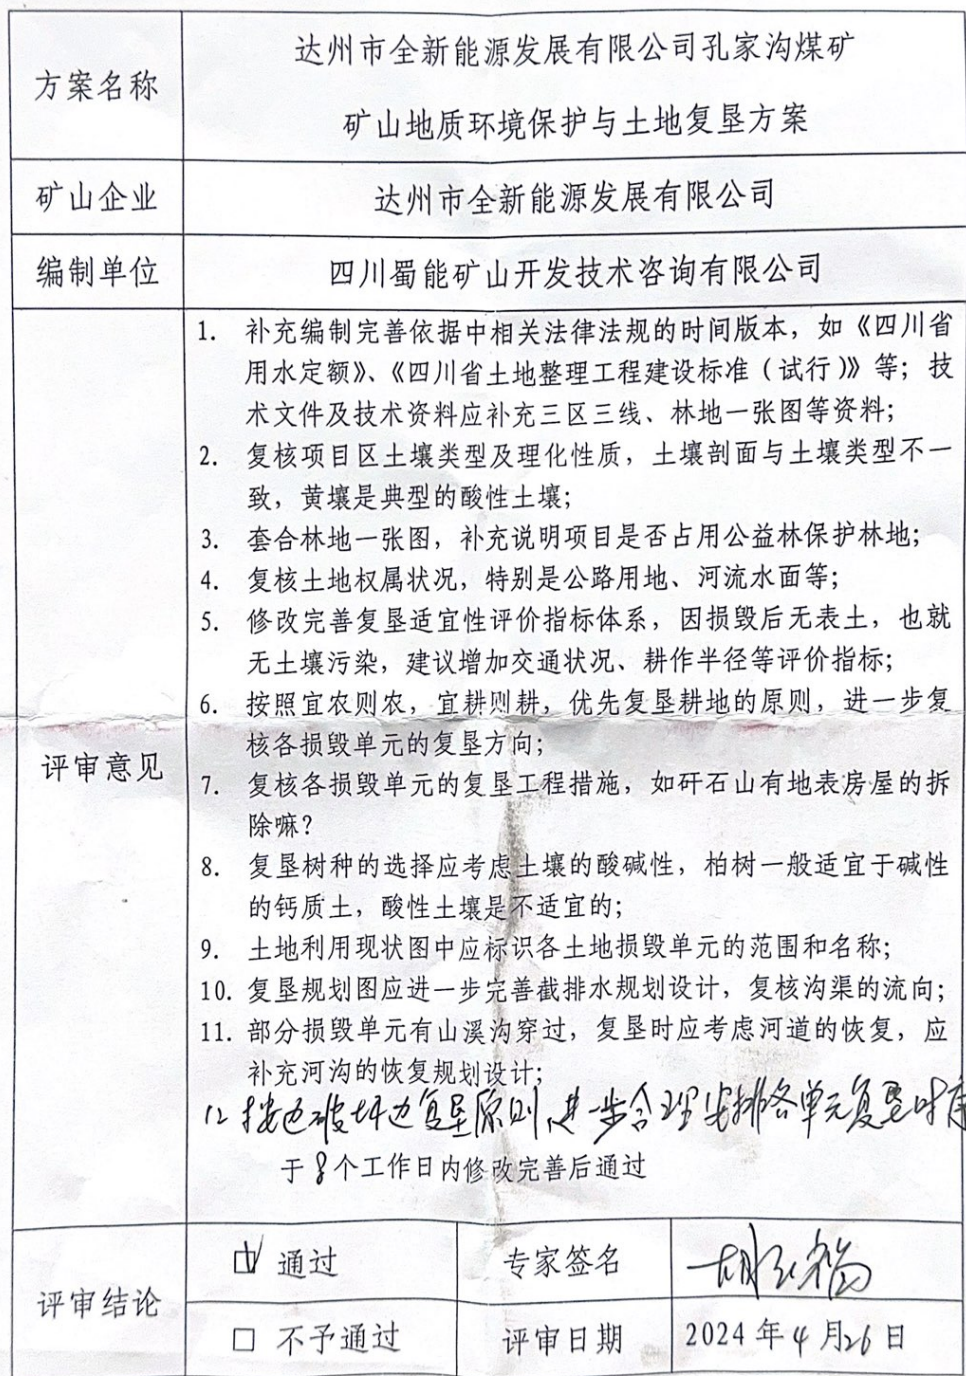 方案名称
达州市全新能源发展有限公司孔家沟煤矿
矿山地质环境保护与土地复垦方案
矿山企业
达州市全新能源发展有限公司
编制单位
四川蜀能矿山开发技术咨询有限公司
评审意见
1. 补充编制完善依据中相关法律法规的时间版本，如《四川省
用水定额》、《四川省土地整理工程建设标准（试行）》等；技
术文件及技术资料应补充三区三线、林地一张图等资料；
2. 复核项目区土壤类型及理化性质，土壤剖面与土壤类型不一
致，黄壤是典型的酸性土壤；
3. 套合林地一张图，补充说明项目是否占用公益林保护林地；
4. 复核土地权属状况，特别是公路用地、河流水面等；
5. 修改完善复垦适宜性评价指标体系，因损毁后无表土，也就
无土壤污染，建议增加交通状况、耕作半径等评价指标；
6. 按照宜农则农，宜耕则耕，优先复垦耕地的原则，进一步复
核各损毁单元的复垦方向；
7. 复核各损毁单元的复垦工程措施，如矸石山有地表房屋的拆
除嘛？
8. 复垦树种的选择应考虑土壤的酸碱性，柏树一般适宜于碱性
的钙质土，酸性土壤是不适宜的；
9. 土地利用现状图中应标识各土地损毁单元的范围和名称；
10. 复垦规划图应进一步完善截排水规划设计，复核沟渠的流向；
11. 部分损毁单元有山溪沟穿过，复垦时应考虑河道的恢复，应
补充河沟的恢复规划设计；
12 按边破坏边复垦原则进一步合理安排各单元复垦时序
于8个工作日内修改完善后通过
评审结论
☑ 通过
专家签名
□ 不予通过
评审日期
2024年4月26日